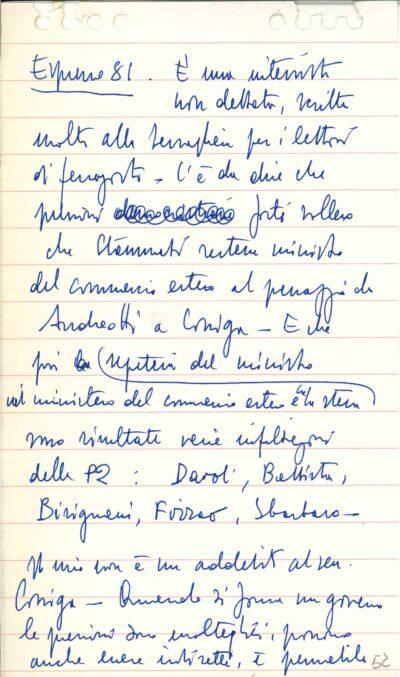 Espresso 81. È una intervista
non dettata, scritta
molto alla svelta per i lettori
di ferragosto - C'è da dire che
pressioni forti vollero
che Stammati restasse ministro
del commercio estero al passaggio da
Andreotti a Cossiga - E che
poi la segreteria del ministro
nel ministero del commercio estero
sono risultate varie infiltrazioni
della P2: Davoli, Battista,
Bisignani, Firrao, Sbarbaro -
Il mio non è un addebito al sen.
Cossiga - Quando si forma un governo
le pressioni sono molteplici, possono
anche essere indirette, è
52